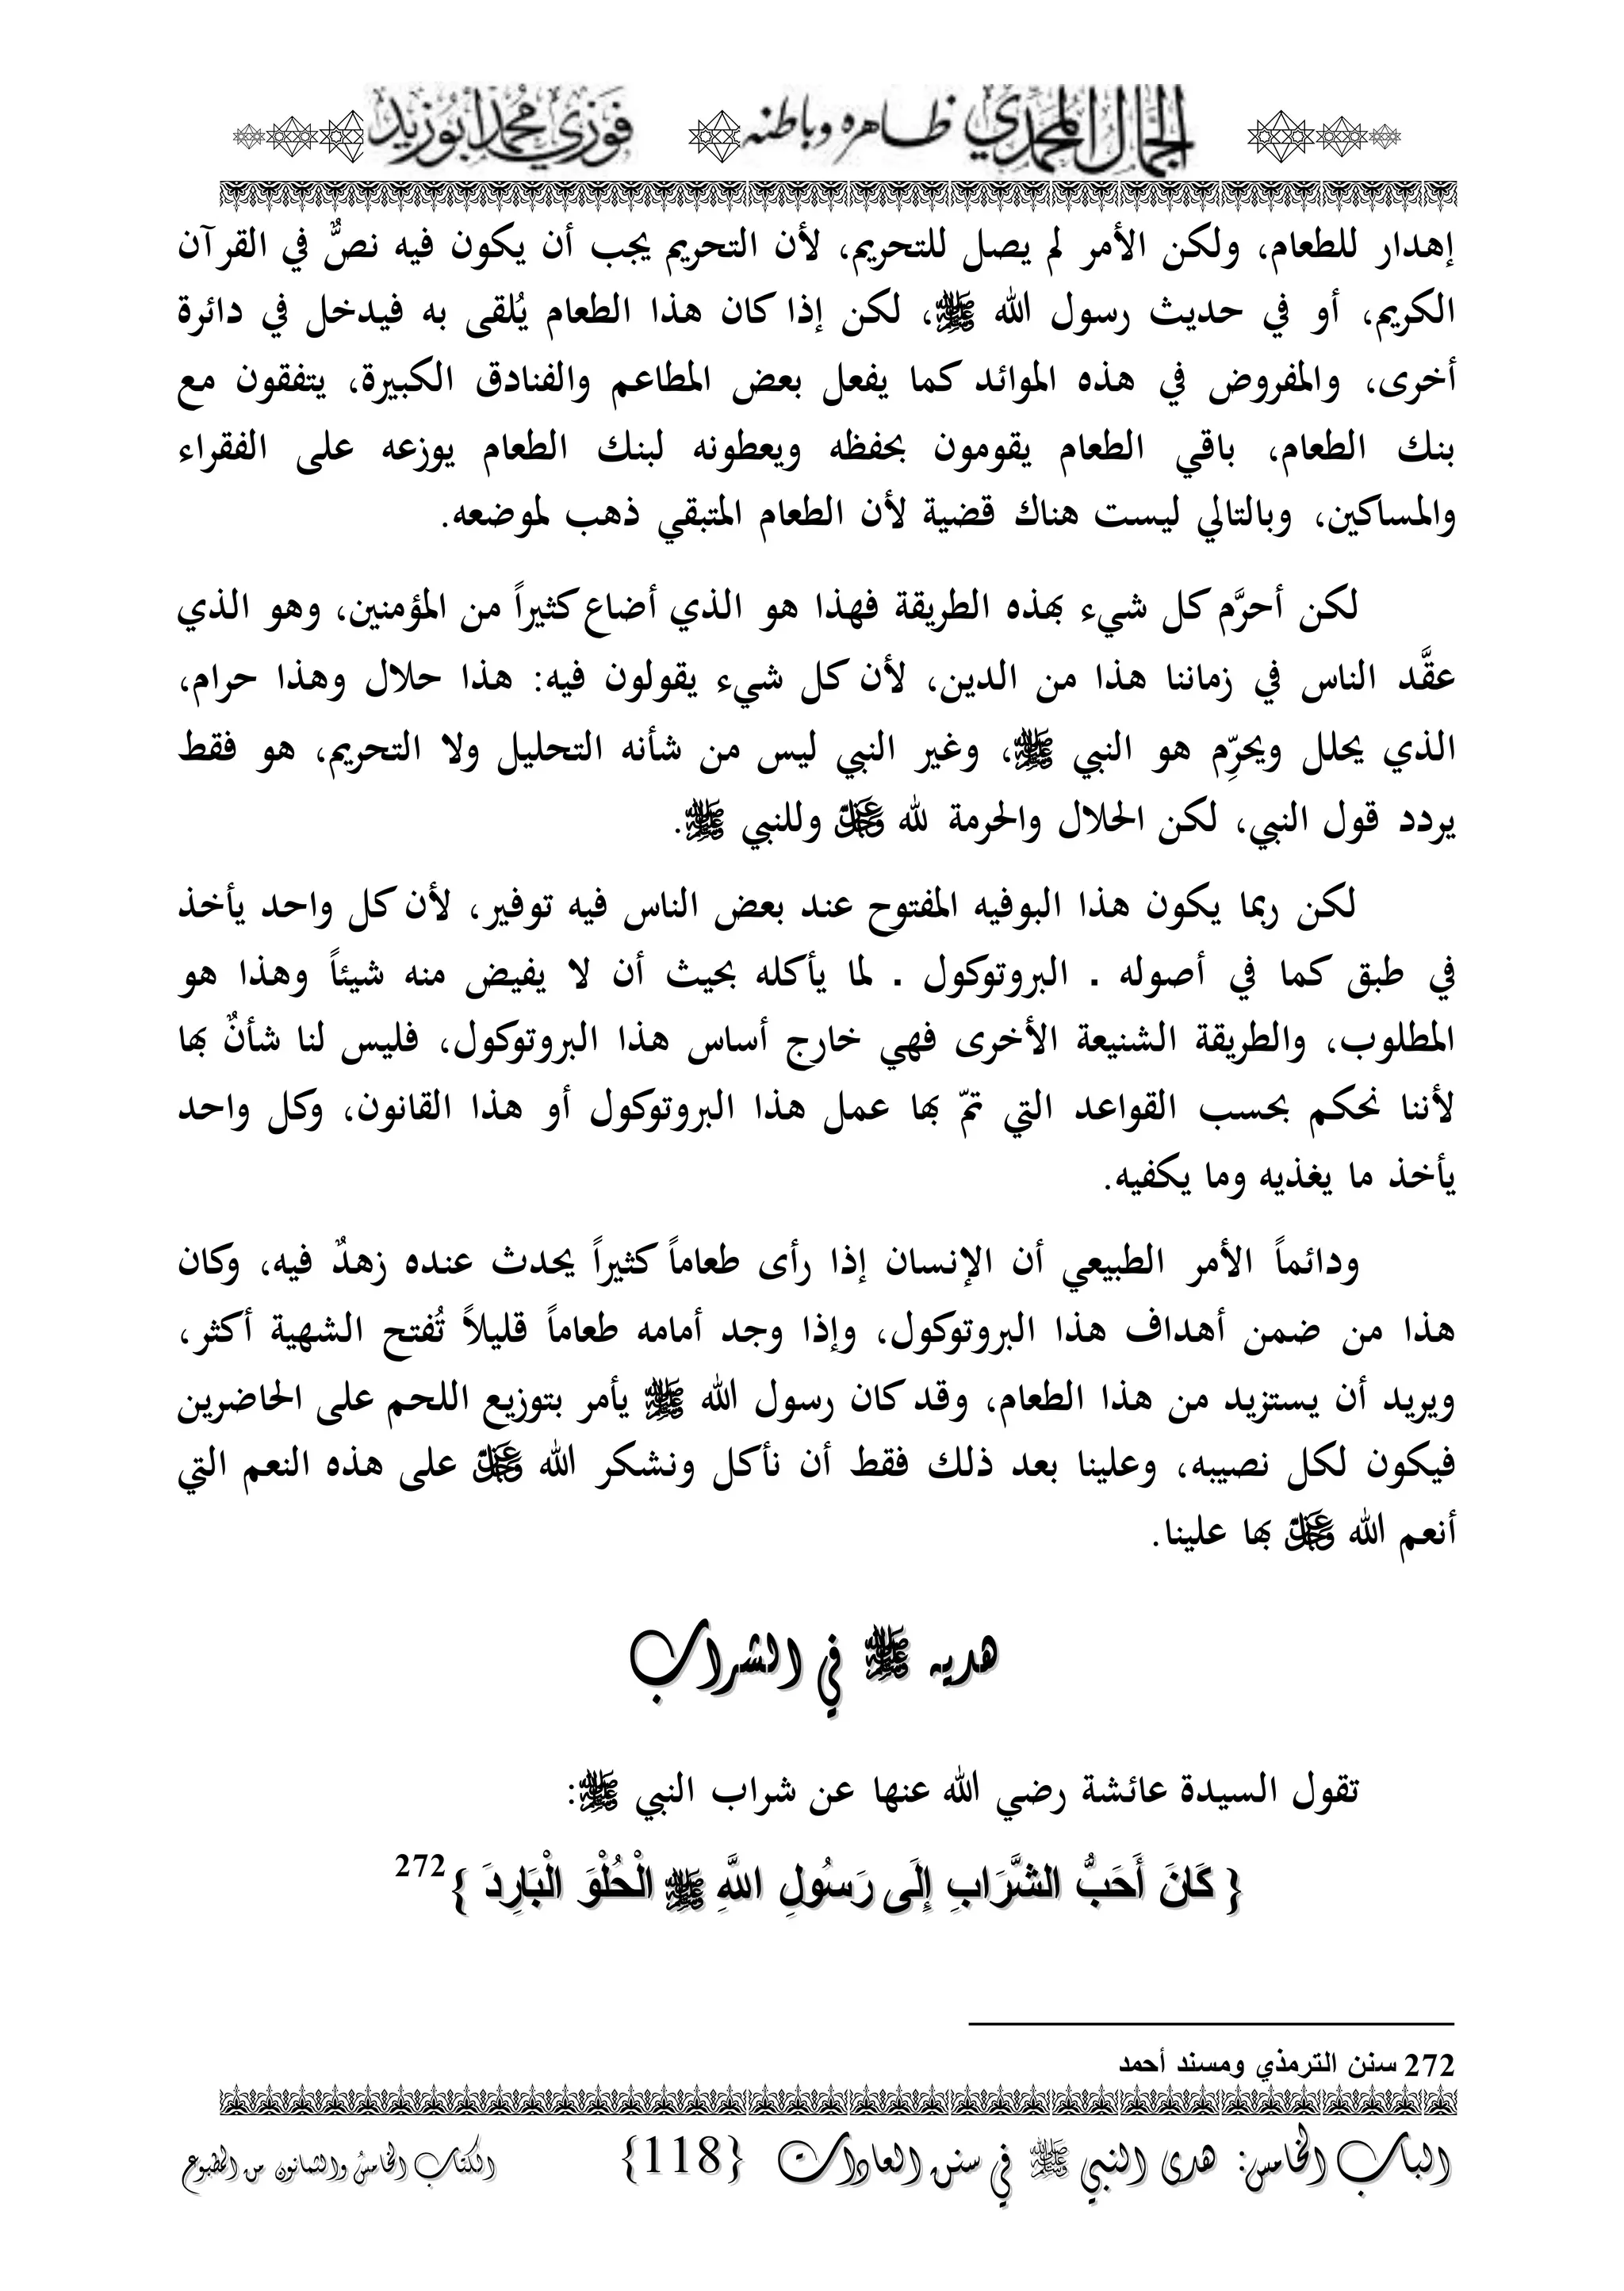 الجمال المحمدي ظاهره وباطنه فوزي محمد أبوزيد
إهدار للطعام، ولكن الأمر لم يصل للتحريم، لأن التحريم يجب أن يكون فيه نصٌّ في القرآن
الكريم، أو في حديث رسول الله ﷺ، لكن إذا كان هذا الطعام يُلقى به فيدخل في دائرة
أخرى، والمفروض في هذه الموائد كما يفعل بعض المطاعم والفنادق الكبيرة، يتفقون مع
بنك الطعام، باقي الطعام يقومون بحفظه ويعطونه لبنك الطعام يوزعه على الفقراء
والمساكين، وبالتالي ليست هناك قضية لأن الطعام المتبقي ذهب لموضعه.
لكن أحرَّم كل شيء بهذه الطريقة فهذا هو الذي أضاع كثيراً من المؤمنين، وهو الذي
عقَّد الناس في زماننا هذا من الدين، لأن كل شيء يقولون فيه: هذا حلال وهذا حرام،
الذي يحلل ويحرِّم هو النبي ﷺ، وغير النبي ليس من شأنه التحليل ولا التحريم، هو فقط
يردد قول النبي، لكن الحلال والحرمة لله عزوجل وللنبي ﷺ.
لكن ربما يكون هذا البوفيه المفتوح عند بعض الناس فيه توفير، لأن كل واحد يأخذ
في طبق كما في أصوله . البروتوكول . لما يأكله بحيث أن لا يفيض منه شيئاً وهذا هو
المطلوب، والطريقة الشنيعة الأخرى فهي خارج أساس هذا البروتوكول، فليس لنا شأنٌ بها
لأننا نحكم بحسب القواعد التي تمّ بها عمل هذا البروتوكول أو هذا القانون، وكل واحد
يأخذ ما يغذيه وما يكفيه.
ودائماً الأمر الطبيعي أن الإنسان إذا رأى طعاماً كثيراً يحدث عنده زهدٌ فيه، وكان
هذا من ضمن أهداف هذا البروتوكول، وإذا وجد أمامه طعاماً قليلاً تُفتح الشهية أكثر،
ويريد أن يستزيد من هذا الطعام، وقد كان رسول الله ﷺ يأمر بتوزيع اللحم على الحاضرين
فيكون لكل نصيبه، وعلينا بعد ذلك فقط أن نأكل ونشكر الله عزوجل على هذه النعم التي
أنعم الله عزوجل بها علينا.
هديه ﷺ في الشراب
تقول السيدة عائشة رضي الله عنها عن شراب النبي ﷺ:
{ كَانَ أَحَبُّ الشَّرَابِ إِلَى رَسُولِ اللَّهِ ﷺ الْحُلْوَ الْبَارِدَ }272
272 سنن الترمذي ومسند أحمد
الباب الخامس: هدى النبي ﷺ في سنن العادات {118} الكتاب الخامس والثمانون من المطبوع